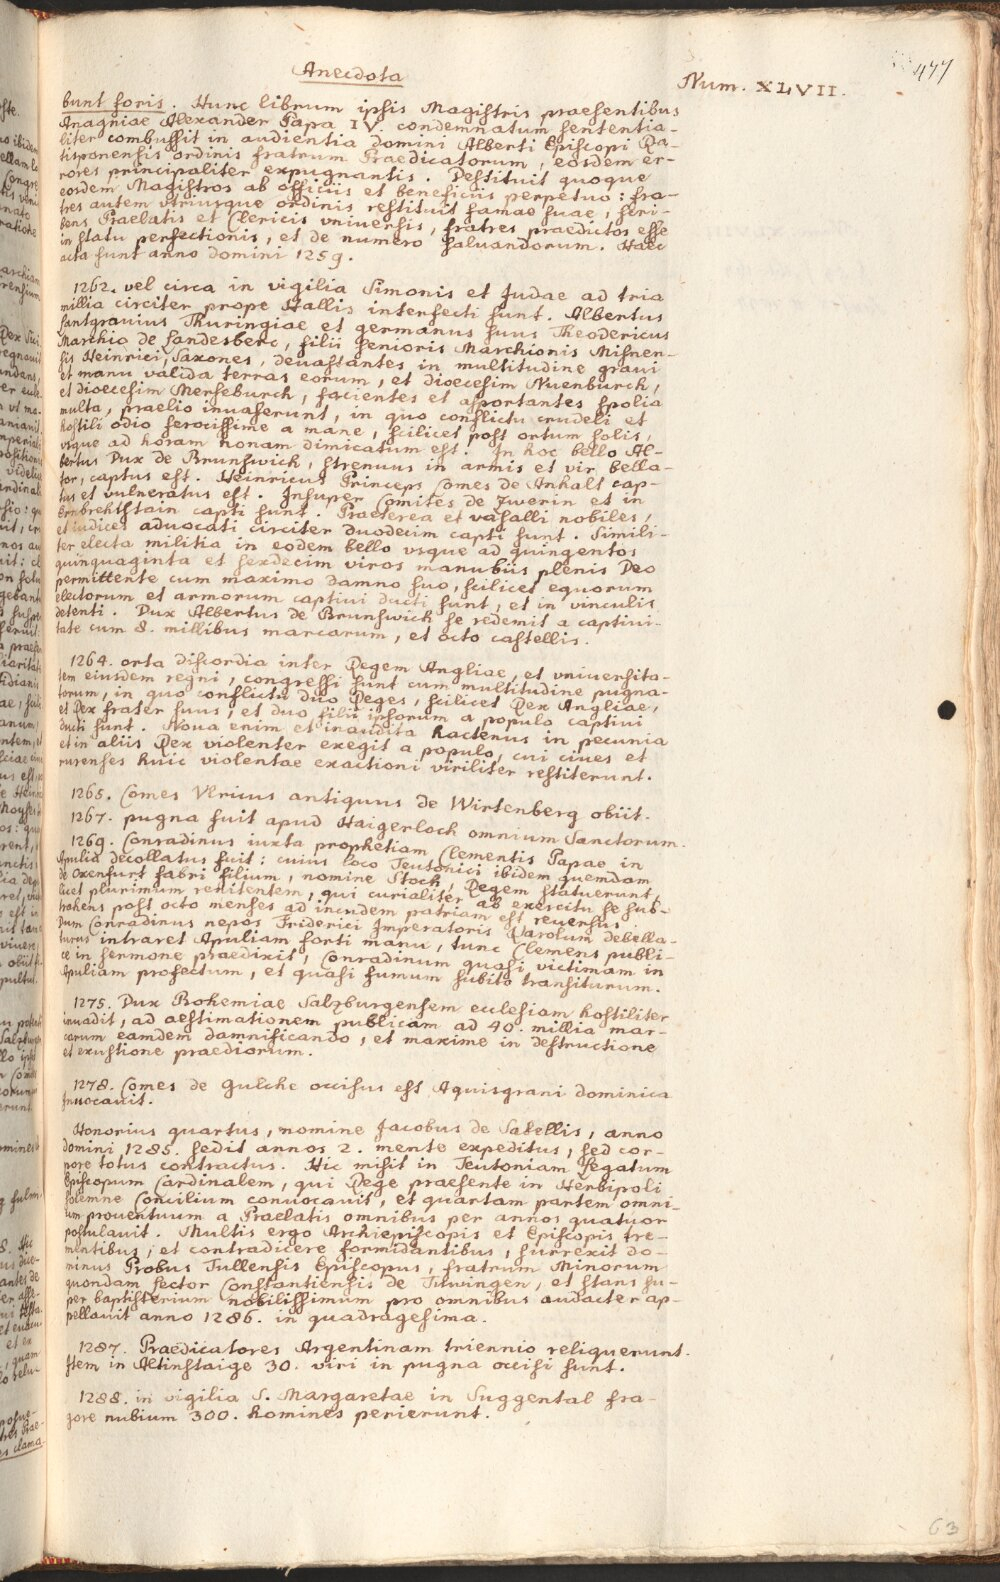 Anecdota
Num. XLVII.
477
bunt foris. Hunc librum ipsis Magistris praesentibus
Anagniae Alexander Papa IV. condemnatum sententia-
liter combussit in audientia domini Alberti Episcopi Ra-
tisponensis ordinis fratrum Praedicatorum, eosdem er-
rores principaliter expugnantis. Destituit quoque
eosdem Magistros ab officiis et beneficiis perpetuo: fra-
tres autem vtriusque ordinis restituit famae suae, scri-
bens Praelatis et Clericis vniuersis, fratres praedictos esse
in statu perfectionis, et de numero saluandorum. Haec
acta sunt anno domini 1259.
1262. vel circa in vigilia Simonis et Judae ad tria
millia circiter prope Hallis interfecti sunt. Albertus
Lantgrauius Thuringiae et germanus suus Theodericus
Marchio de Landesberc, filii senioris Marchionis Misnen-
sis Heinrici, Saxones, deuastantes in multitudine graui
et manu valida terras eorum, et dioecesim Nuenburch,
et dioecesim Merseburch, facientes et asportantes spolia
multa, praelio inuaserunt, in quo conflictu crudeli et
hostili odio ferocissime a mane, scilicet post ortum solis,
vsque ad horam nonam dimicatum est. In hoc bello Al-
bertus Dux de Brunswich, strenuus in armis et vir bella-
tor, captus est. Heinricus Princeps Comes de Anhalt cap-
tus et vulneratus est. Insuper Comites de Zwerin et in
Ernbrehtstain capti sunt. Praeterea et vasalli nobiles,
et iudices aduocati circiter duodecim capti sunt. Simili-
ter electa militia in eodem bello vsque ad quingentos
quinquaginta et sexdecim viros manubiis plenis Deo
permittente cum maximo damno suo, scilicet equorum
electorum et armorum captiui ducti sunt, et in vinculis
detenti. Dux Albertus de Brunswich se redemit a captiui-
tate cum 8. millibus marcarum, et octo castellis.
1264. orta discordia inter Regem Angliae, et vniuersita-
tem eiusdem regni, congressi sunt cum multitudine pugna-
torum, in quo conflictu duo Reges, scilicet Rex Angliae,
et Rex frater suus, et duo filii ipsorum a populo captiui
ducti sunt. Noua enim et inaudita hactenus in pecunia
et in aliis Rex violenter exegit a populo, cui ciues et
rurenses huic violentae exactioni viriliter restiterunt.
1265. Comes Vlricus antiquus de Wirtenberg obiit.
1267. pugna fuit apud Haigerloch omnium Sanctorum.
1269. Conradinus iuxta prophetiam Clementis Papae in
Apulia decollatus fuit: cuius loco Teutonici ibidem quemdam
de Oxenfurt fabri filium, nomine Stock, Regem statuerunt,
licet plurimum renitentem, qui curialiter ab exercitu se sub-
trahens post octo menses ad incudem patriam est reuersus.
Dum Conradinus nepos Friderici Imperatoris Karolum debella-
turus intraret Apuliam forti manu, tunc Clemens publi-
ce in sermone praedixit, Conradinum quasi victimam in
Apuliam profectum, et quasi fumum subito transiturum.
1275. Dux Bohemiae Salzburgensem ecclesiam hostiliter
inuadit, ad aestimationem publicam ad 40. millia mar-
carum eamdem damnificando, et maxime in destructione
et exustione praediorum.
1278. Comes de Gulche occisus est Aquisgrani dominica
Inuocauit.
Honorius quartus, nomine Jacobus de Sabellis, anno
domini 1285. sedit annos 2. mente expeditus, sed cor-
pore totus contractus. Hic misit in Teutoniam Legatum
Episcopum Cardinalem, qui Rege praesente in Herbipoli
solemne Concilium conuocauit, et quartam partem omni-
um prouentuum a Praelatis omnibus per annos quatuor
postulauit. Multis ergo Archiepiscopis et Episcopis tre-
mentibus, et contradicere formidantibus, surrexit do-
minus Probus Tullensis Episcopus, fratrum Minorum
quondam Lector Constantiensis de Tuwingen, et stans su-
per baptisterium nobilissimum pro omnibus audacter ap-
pellauit anno 1286. in quadragesima.
1287. Praedicatores Argentinam triennio reliquerunt.
Item in Altinstaige 30. viri in pugna occisi sunt.
1288. in vigilia S. Margaretae in Suggental fra-
gore nubium 300. homines perierunt.
63